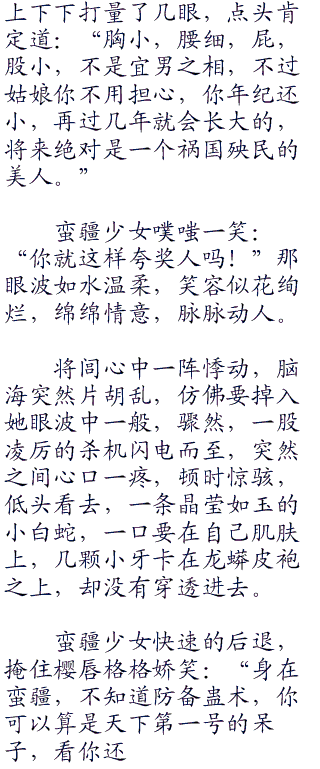 上下下打量了几眼，点头肯
定道：“胸小，腰细，屁，
股小，不是宜男之相，不过
姑娘你不用担心，你年纪还
小，再过几年就会长大的，
将来绝对是一个祸国殃民的
美人。”
蛮疆少女噗嗤一笑：
“你就这样夸奖人吗！”那
眼波如水温柔，笑容似花绚
烂，绵绵情意，脉脉动人。
将闾心中一阵悸动，脑
海突然片胡乱，仿佛要掉入
她眼波中一般，骤然，一股
凌厉的杀机闪电而至，突然
之间心口一疼，顿时惊骇，
低头看去，一条晶莹如玉的
小白蛇，一口要在自己肌肤
上，几颗小牙卡在龙蟒皮袍
之上，却没有穿透进去。
蛮疆少女快速的后退，
掩住樱唇格格娇笑：“身在
蛮疆，不知道防备蛊术，你
可以算是天下第一号的呆
子，看你还